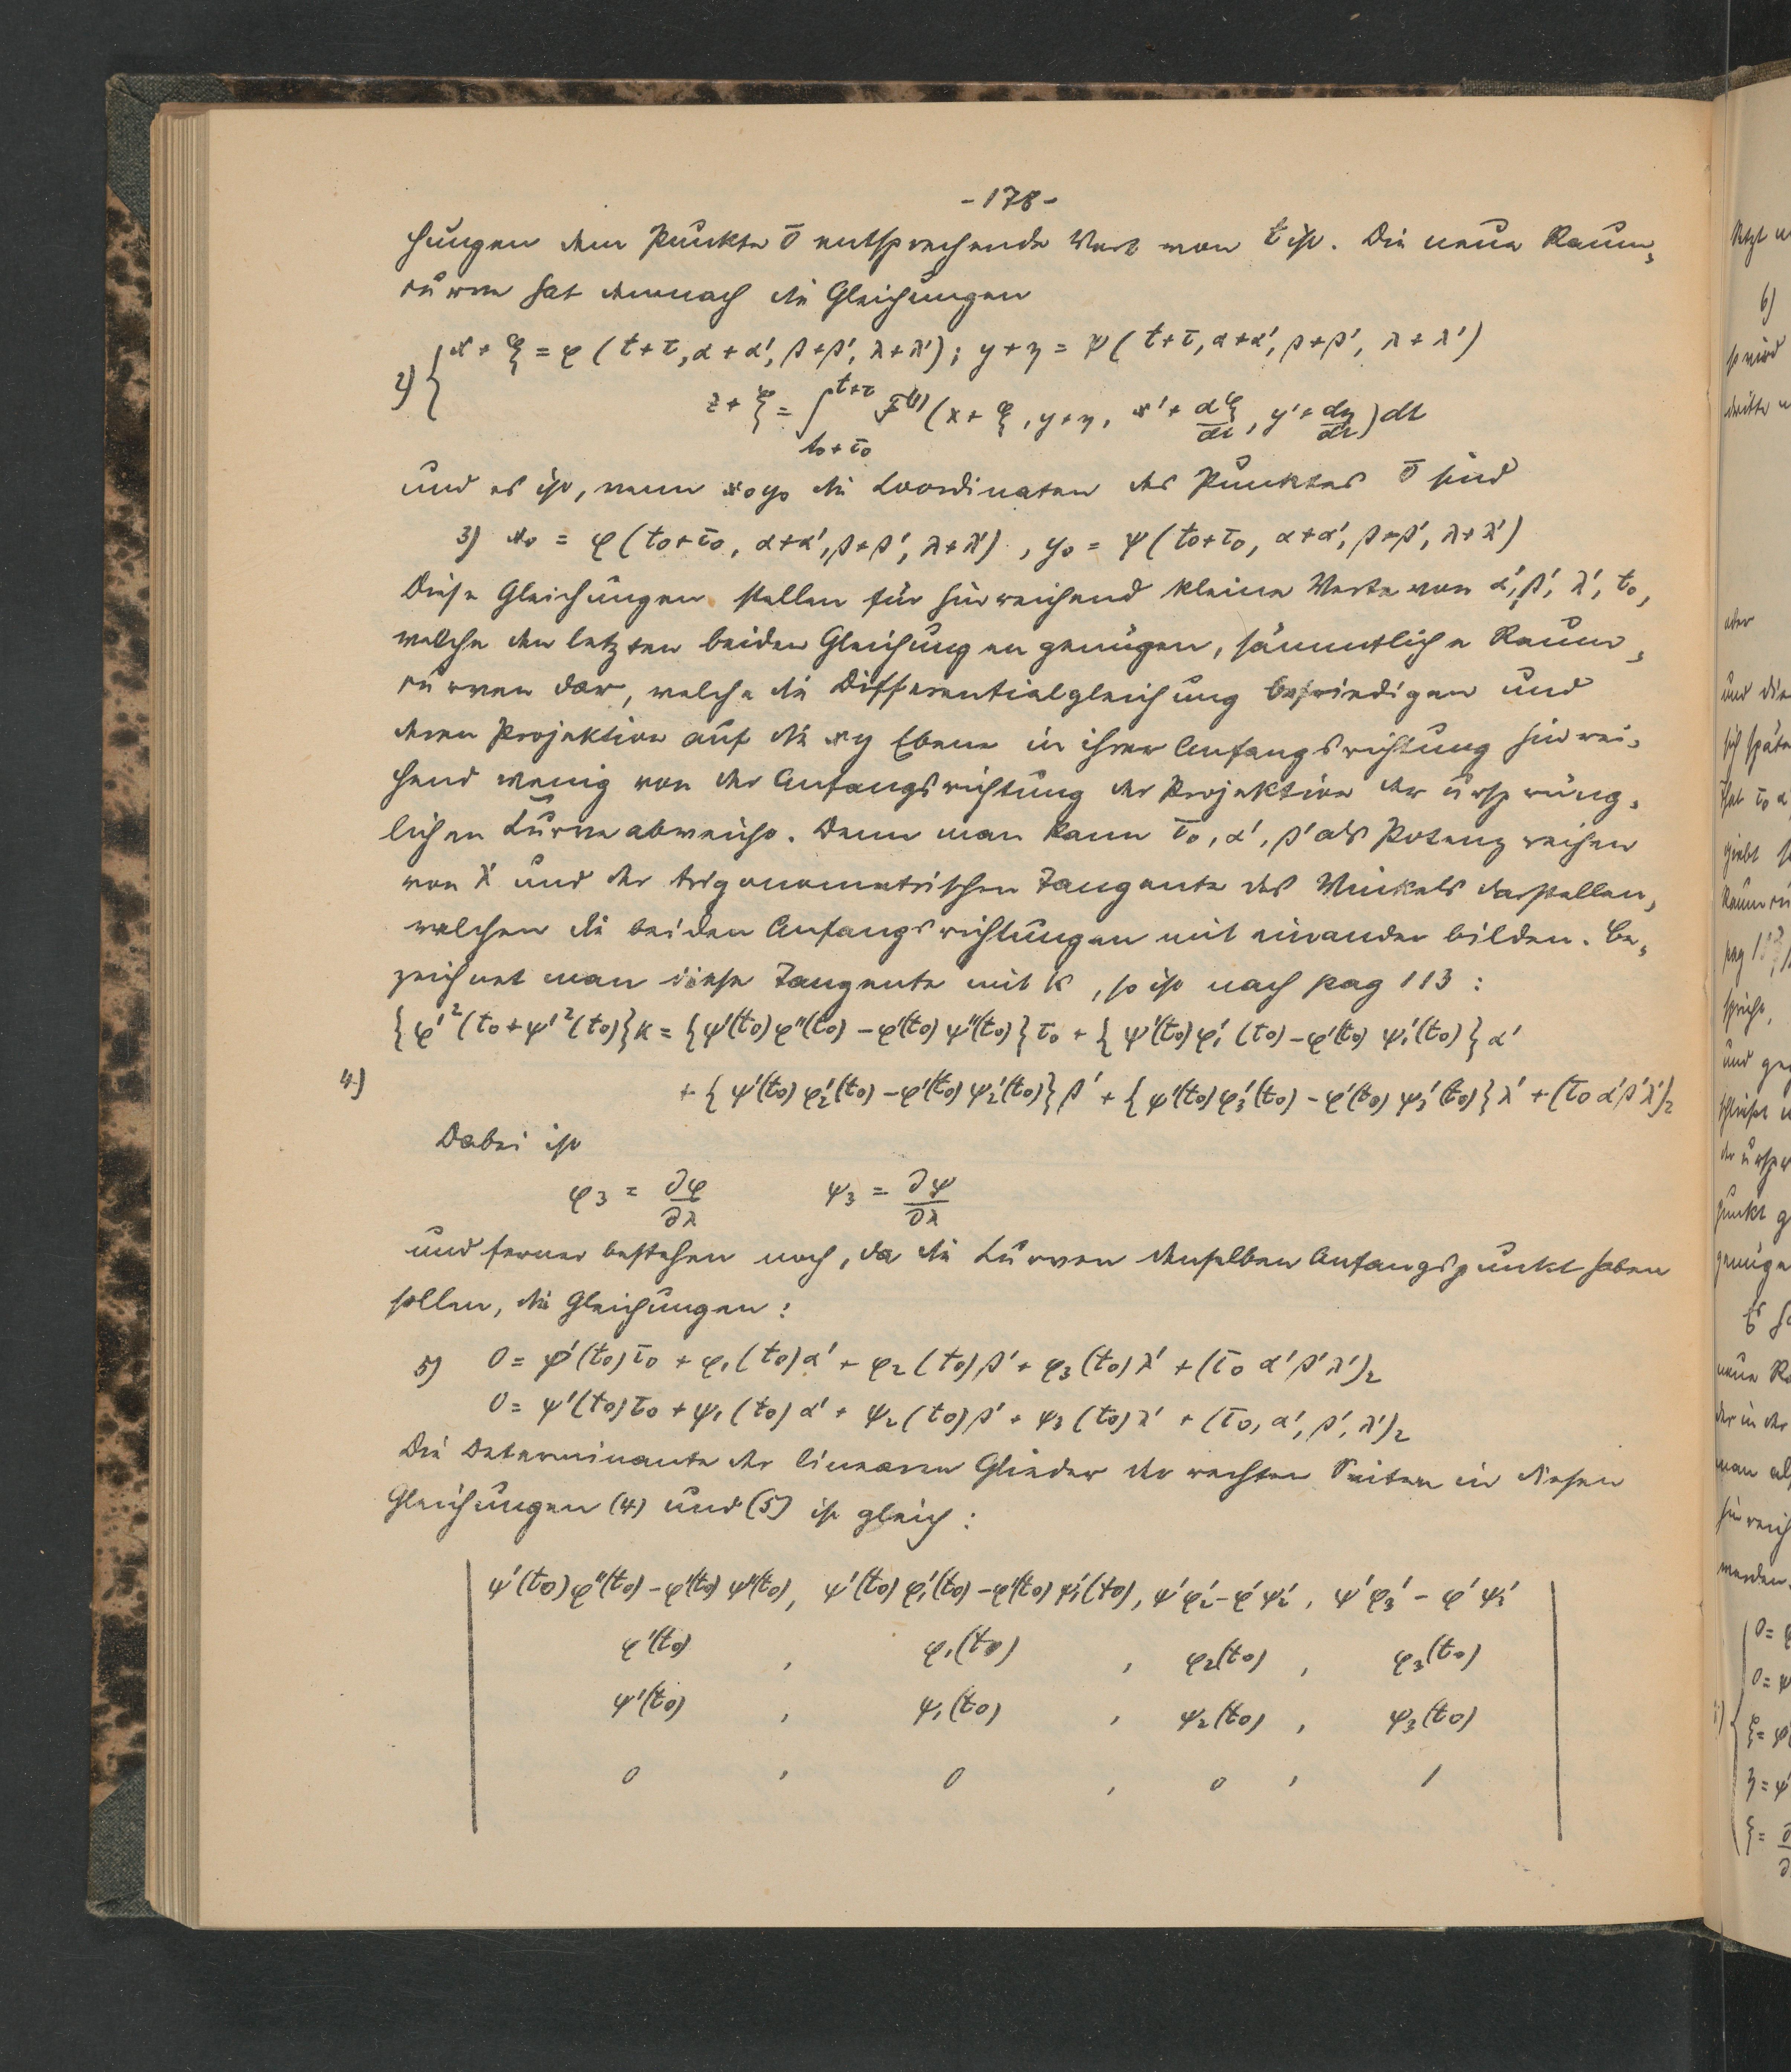 -178-
chungen dem Punkte O̅ entsprechende Wert von t ist. Die neue Raum-
curve hat demnach die Gleichungen
2) { x + ξ = φ(t+τ, α+α', β+β', λ+λ'); y+η = ψ(t+τ, α+α', β+β', λ+λ')
z + ζ = ∫_{t₀+τ₀}^{t+τ} F⁽¹⁾(x+ξ, y+η, x'+dξ/dt, y'+dη/dt) dt
und es ist, wenn x₀y₀ die Coordinaten des Punktes O̅ sind
3) x₀ = φ(t₀+τ₀, α+α', β+β', λ+λ'), y₀ = ψ(t₀+τ₀, α+α', β+β', λ+λ')
Diese Gleichungen stellen für hinreichend kleine Werte von α', β', λ', t₀,
welche den letzten beiden Gleichungen genügen, sämmtliche Raum-
curven dar, welche die Differentialgleichung befriedigen und
deren Projektion auf die xy Ebene in ihrer Anfangsrichtung hinrei-
chend wenig von der Anfangsrichtung der Projektion der ursprüng-
lichen Curve abweicht. Denn man kann τ₀, α', β' als Potenzreihen
von λ' und der trigonometrischen Tangente des Winkels darstellen,
welchen die beiden Anfangsrichtungen mit einander bilden. Be-
zeichnet man diese Tangente mit k, so ist nach pag 113:
{φ'²(t₀+ψ'²(t₀)}k = {ψ'(t₀)φ''(t₀) − φ'(t₀)ψ''(t₀)}τ₀ + {ψ'(t₀)φ₁'(t₀) − φ'(t₀)ψ₁'(t₀)}α'
4) + {ψ'(t₀)φ₂'(t₀) − φ'(t₀)ψ₂'(t₀)}β' + {ψ'(t₀)φ₃'(t₀) − φ'(t₀)ψ₃'(t₀)}λ' + (τ₀α'β'λ')₂
Dabei ist
φ₃ = ∂φ/∂λ ψ₃ = ∂ψ/∂λ
und ferner bestehen noch, da die Curven denselben Anfangspunkt haben
sollen, die Gleichungen:
5) 0 = φ'(t₀)τ₀ + φ₁(t₀)α' + φ₂(t₀)β' + φ₃(t₀)λ' + (τ₀ α'β'λ')₂
0 = ψ'(t₀)τ₀ + ψ₁(t₀)α' + ψ₂(t₀)β' + ψ₃(t₀)λ' + (τ₀, α', β', λ')₂
Die Determinante der linearen Glieder der rechten Seiten in diesen
Gleichungen (4) und (5) ist gleich:
| ψ'(t₀)φ''(t₀) − φ'(t₀)ψ''(t₀), ψ'(t₀)φ₁'(t₀) − φ'(t₀)ψ₁'(t₀), ψ'φ₂' − φ'ψ₂', ψ'φ₃' − φ'ψ₃' |
φ'(t₀) , φ₁(t₀) , φ₂(t₀) , φ₃(t₀)
ψ'(t₀) , ψ₁(t₀) , ψ₂(t₀) , ψ₃(t₀)
0 , 0 , 0 , 1